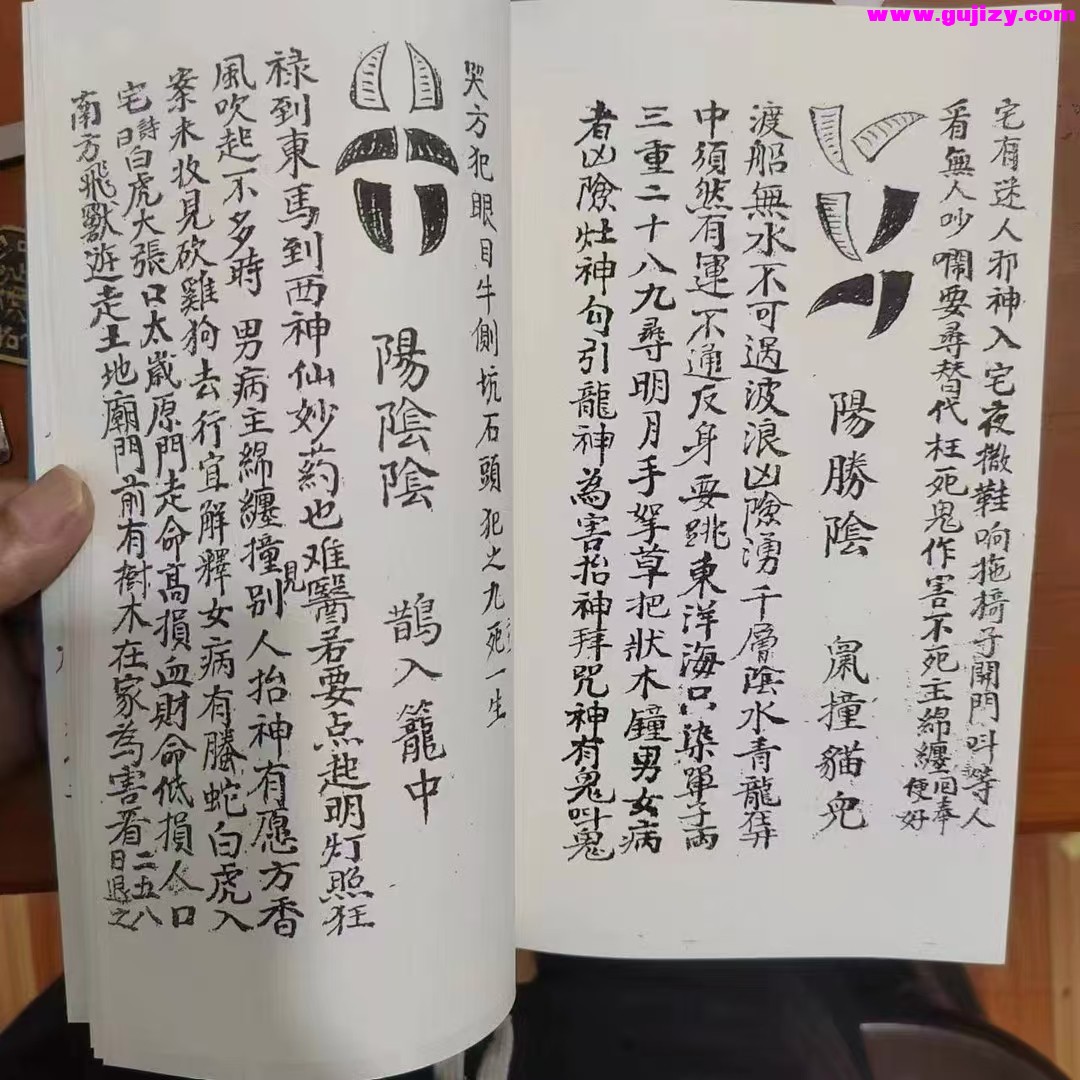 www.gujizy.com
宅有迷人邪神入宅夜撒鞋响拖椅子開門叫等人
看無人吵鬧要尋替代枉死鬼作害不死主綿纏回奉便好
陽勝陰 鼠撞貓兒
渡船無水不可過波浪凶險湧千層陰水青龍在井
中須然有運不通反身要跳東洋海口染單子兩
三重二十八九尋明月手拏草把狀木鐘男女病
者凶險灶神勾引龍神為害抬神拜咒神有鬼叫鬼
哭方犯眼目牛側坑石頭犯之九死一生
陽陰陰 鵲入籠中
祿到東馬到西神仙妙药也难醫若要点起明灯照狂
風吹起不多時 男病主綿纏撞見别人抬神有愿方香
案未收見砍雞狗去行宜解釋女病有螣蛇白虎入
宅詩曰白虎大張口太歲原門走命高損血財命低損人口
南方飛獸遊走土地廟門前有樹木在家為害看二五八日退之